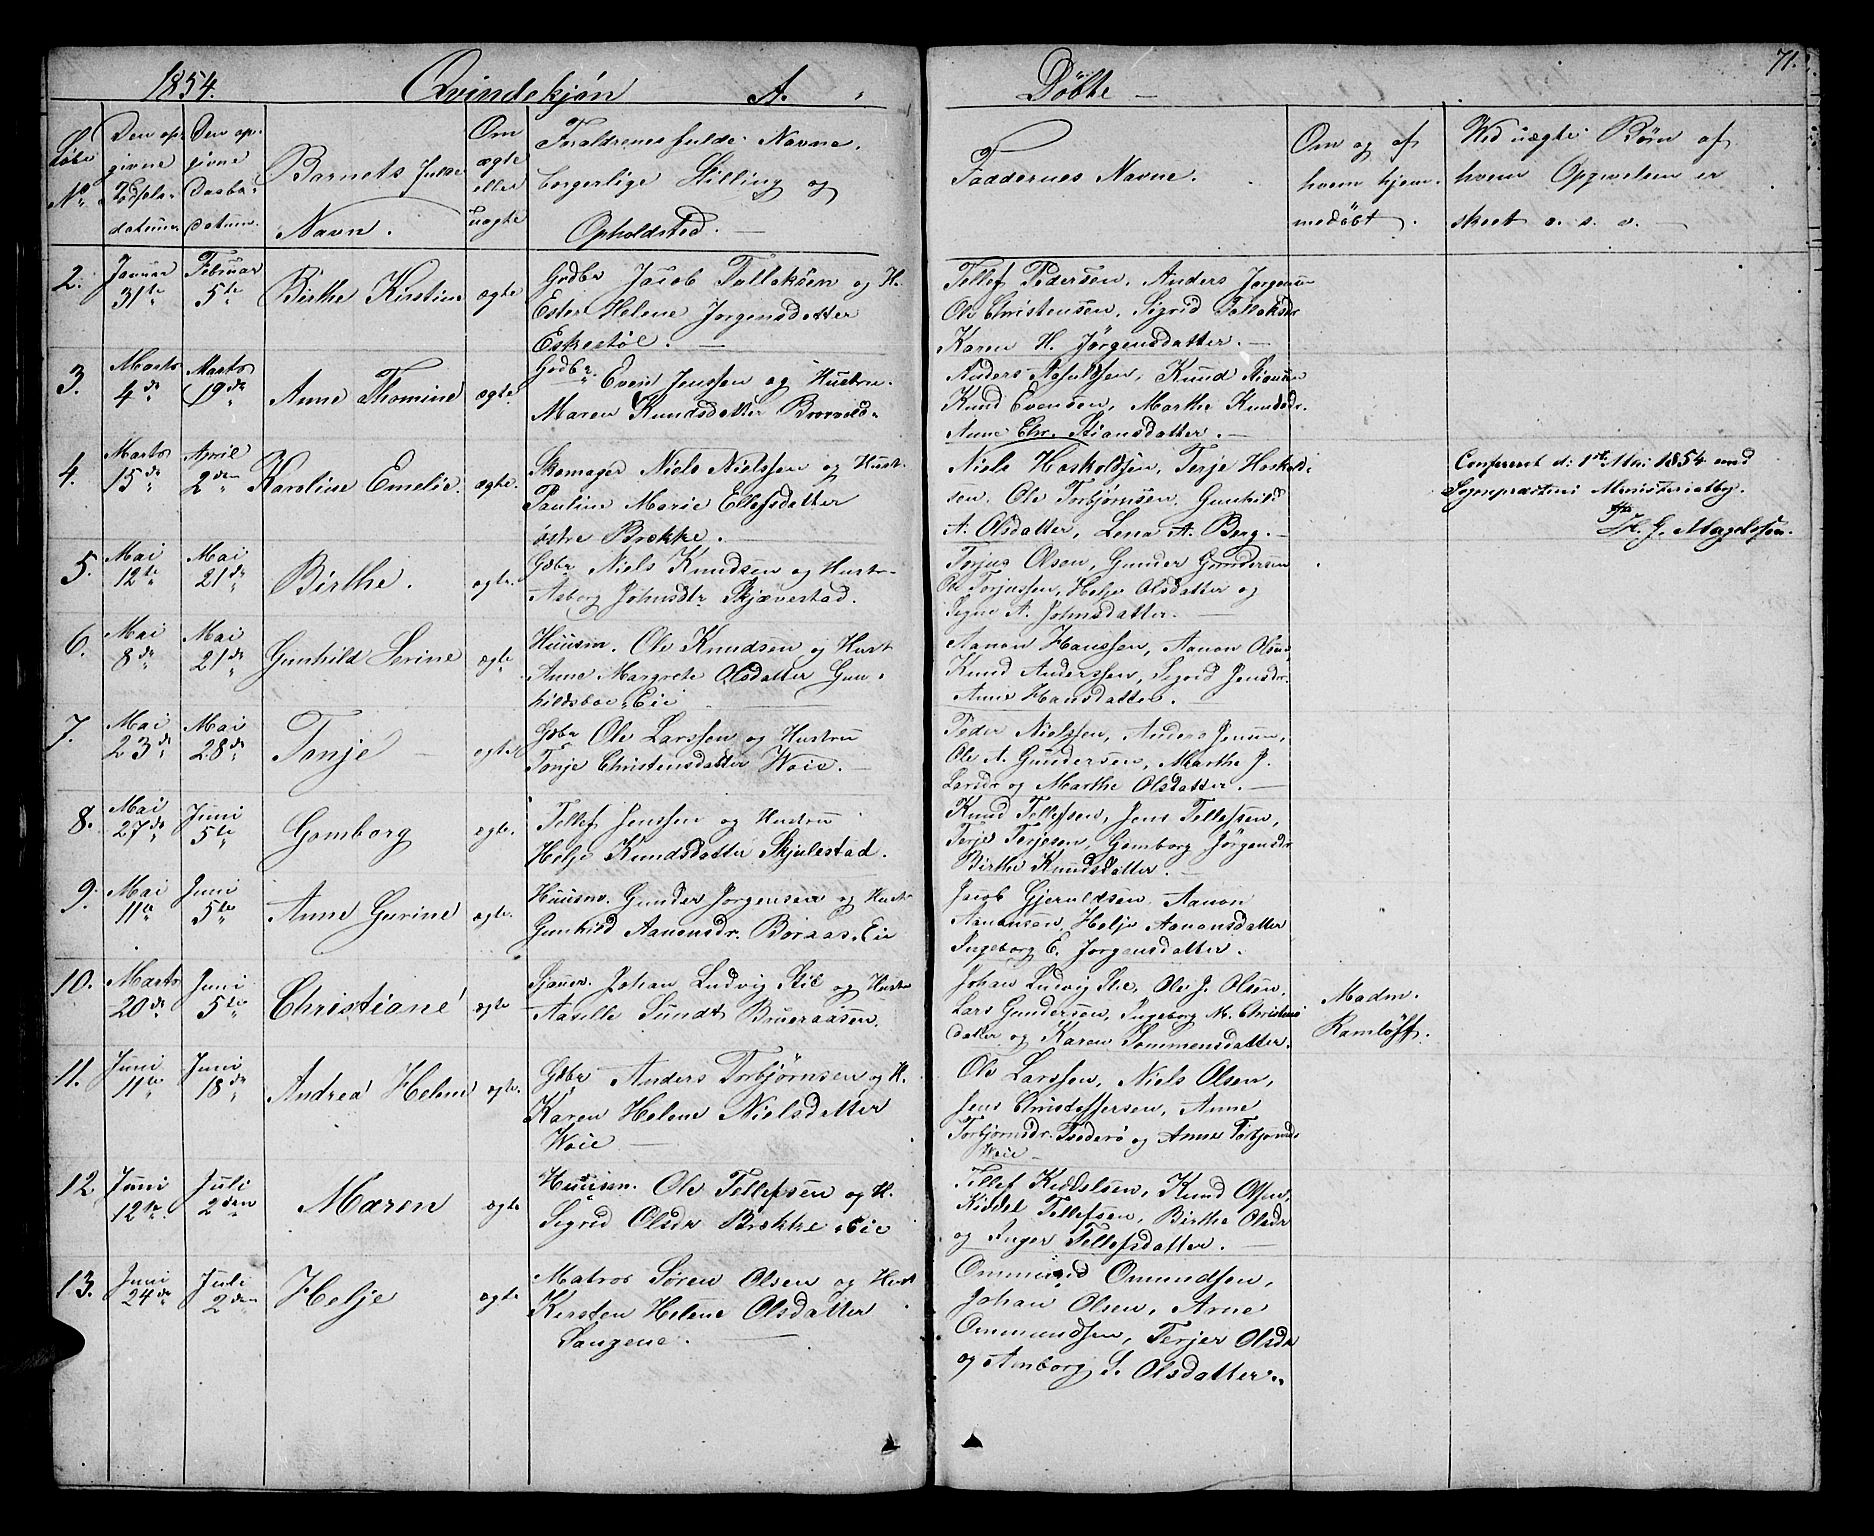 1854. Qvindekjøn A. Døbte — 71.
Løbe No
Den opgivne Fødselsdatum.
Den opgivne Daabsdatum.
Barnets fulde Navn.
Om ægte eller uægte
Forældrenes fulde Navne, borgerlige Stilling og Opholdsted. —
Faddernes Navne.
Om og af hvem hjemmedöbt.
Ved uægte Børn af hvem Opgivelsen er skeet o. s. v. —
2. Januar 31te Februar 5te Birthe Kirstine ægte
Gdbr Jacob Tallaksen og H.
Ester Helene Jørgensdatter
Eskestøl. —
Tellef Pedersen, Anders Jørgensen
Ole Christensen, Sigrid Tallaksdr
Karen H. Jörgensdatter. —
3. Marts 4de Marts 19de Anne Thomine ægte
Gdbr. Even Jenssen og Hustru.
Maren Knudsdatter
Anders Knud
Knud Evensen, Marthe Knudsdr.
Anne Chr. Stiansdatter. —
4. Marts 15de April 2den Karoline Emelie. ægte.
Skomager Niels Nielssen og Hust.
Pauline Marie Ellefsdatter
östre Brække. —
Niels Hoskoldsen, Terje Hoskold-
sen. Ole Torbjørnsen, Gunhild
A. Olsdatter, Lena A. Berg. —
Confereret d: 1ste Mai 1854 med
Sognepræstens Ministerialbg.
H. J. Magelssen.
5. Mai 12te Mai 21de Birthe. ægte.
Gdbr Niels Knudsen og Hustr
Aaborg Johnsdtr Skjævestad.
Terjus Olsen, Gunder Gundersen
Ole Terjussen, Helje Olsdatter og
Signe A. Johnsdatter. —
6. Mai 8de Mai 21de Gunhild Serine ægte
Huusm. Ole Knudsen og Hust
Anne Margrete Olsdatter Gun-
hildsboe Eie
Aanon Hanssen, Aanon Olsen,
Knud Anderssen, Sigrid Jensdr.
Anne Hansdatter. —
7. Mai 23de Mai 28de Tonje — ægte
Gdbr Ole Larssen og Hustru
Tonje Christensdatter Woie. —
Peder Nielssen, Anders Jensen,
Ole A. Gundersen, Marthe J.
Larsdr og Marthe Olsdatter. —
8. Mai 27de Juni 5te Gomborg ægte.
Tellef Jenssen og Hustru
Helje Knudsdatter Skjulestad.
Knud Tellefsen, Jens Tellefsen,
Terje Terjesen, Gomborg Jörgensdr
Birthe Knudsdatter. —
9. Mai 11te Juni 5te Anne Gurine ægte.
Huusm. Gunder Jørgensen og Hustr
Gunhild Aanonsdr. Boraas, Eie
Jacob Gjeruldsen, Aanon
Aanonsen, Helje Aanonsdatter
Ingeborg E. Jørgensdatter.
10. Marts 20de Juni 5te Christiane ægte
Johan Ludvig Stie og Hustr
Aaselle Sundt
Johan Ludvig Stie, Ole J. Olsen,
Lars Gundersen, Ingeborg M. Christens
datter og Karen Sommensdatter.
Madm.
Ramlöff.
11. Juni 11te Juni 18de Andrea Helene ægte.
Gdbr Anders Torbjørnsen og H.
Karen Helene Nielsdatter
Woie —
Ole Larssen, Niels Olsen,
Jens Christoffersen, Anne
Torbjørnsdr. og Anne Torbjørnsdr
Woie —
12 Juni 12te Juli 2den Maren ægte
Huusm. Ole Tellefsen og H.
Sigrid Olsdr Brække Eie
Tellef Kiddelsen, Knud Olsen,
Kiddel Tellefsen, Birthe Olsdr
og Inger Tellefsdatter. —
13. Juni 24de Juli 2den Helje ægte
Matros Søren Olsen og Hust
Kirsten Helene Olsdatter
Songene. —
Ommund Omundsen,
Johan Olsen, Arne
Ommundsen, Terjer Olsdr
og Amborg S. Olsdatter.